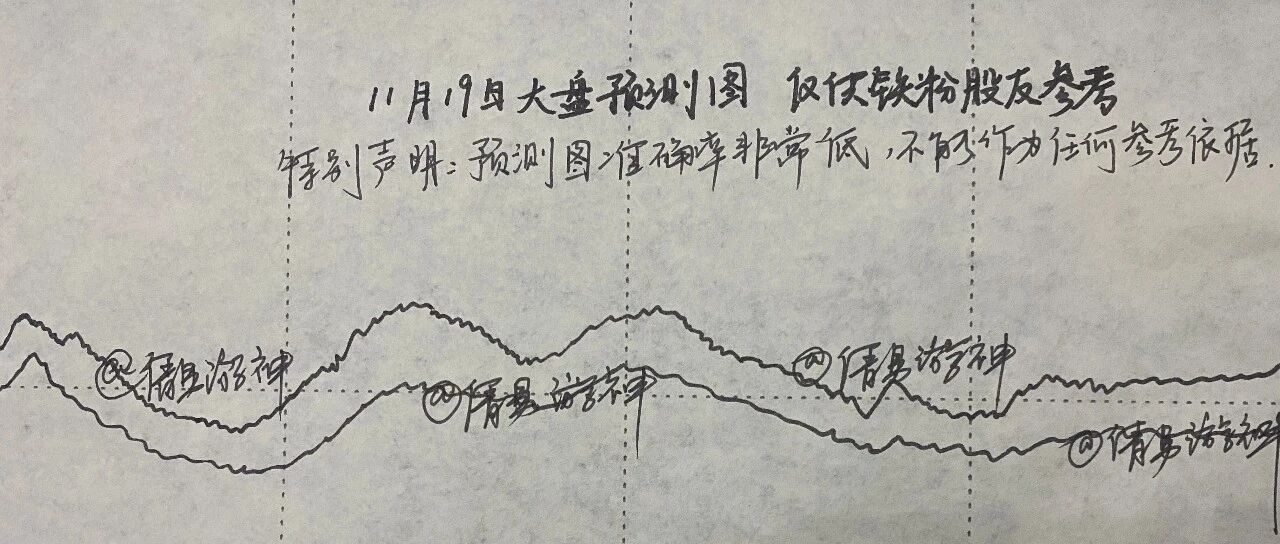 11月19日大盘预测图 仅供铁粉股友参考
特别声明:预测图准确率非常低,不能作为任何参考依据.
@倩易游神
@倩易游神
@倩易游神
@倩易游神